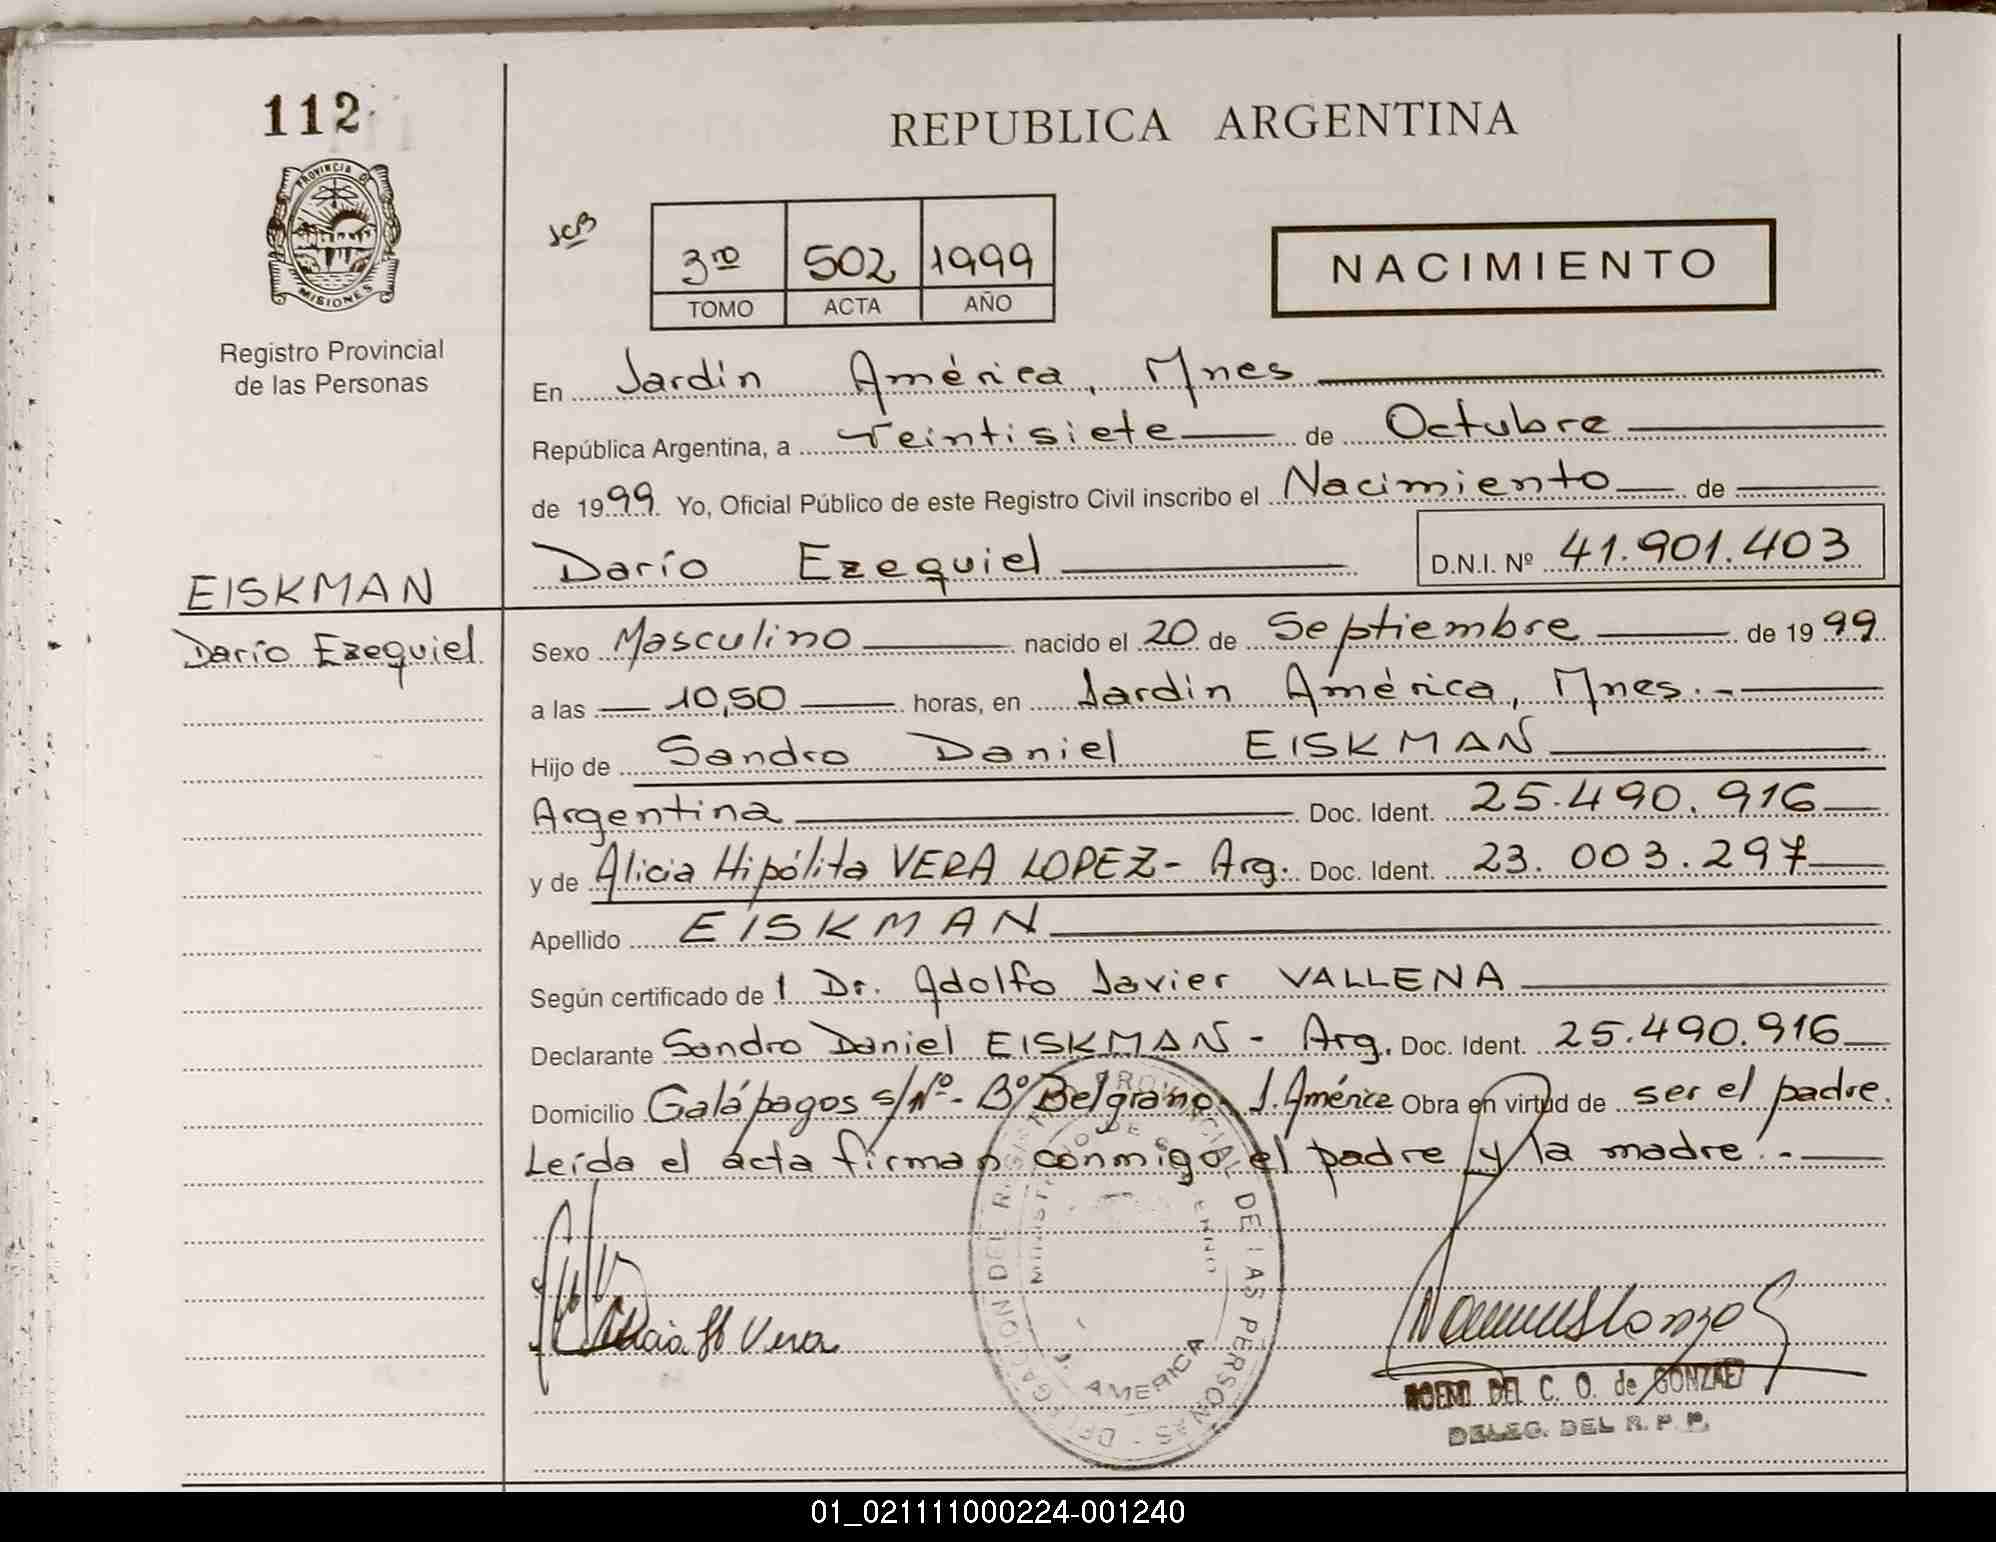 112
REPUBLICA ARGENTINA
PROVINCIA DE
MISIONES
Registro Provincial
de las Personas
JCB
3ro 502 1999
TOMO ACTA AÑO
NACIMIENTO
En Jardín América, Mnes
República Argentina, a veintisiete de Octubre
de 1999 Yo, Oficial Público de este Registro Civil inscribo el Nacimiento de
Darío Ezequiel D.N.I. Nº 41.901.403
EISKMAN
Darío Ezequiel
Sexo Masculino nacido el 20 de Septiembre de 1999
a las 10,50 horas, en Jardín América, Mnes.-
Hijo de Sandro Daniel EISKMAN
Argentina Doc. Ident. 25.490.916
y de Alicia Hipólita VERA LOPEZ - Arg. Doc. Ident. 23.003.297
Apellido EISKMAN
Según certificado de 1 Dr. Adolfo Javier VALLENA
Declarante Sandro Daniel EISKMAN - Arg. Doc. Ident. 25.490.916
Domicilio Galápagos s/Nº - Bº Belgrano J. América Obra en virtud de ser el padre.
Leída el acta firman conmigo el padre y la madre.-
DELEGACION DEL REGISTRO PROVINCIAL DE LAS PERSONAS
MINISTERIO DE
J. AMERICA
Alicia H Vera
DEL C. O. de GONZALEZ
DELEG. DEL R. P. P.
01_021111000224-001240